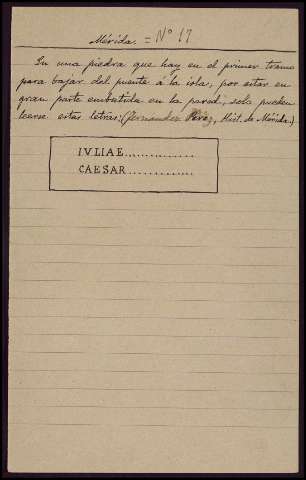 Mérida. = Nº 17
En una piedra que hay en el primer tramo
para bajar del puente á la isla, por estar en
gran parte embutida en la pared, solo pueden
leerse estas letras: (Fernandez Pérez, Hist. de Mérida.)
IVLIAE..............
CAESAR.............